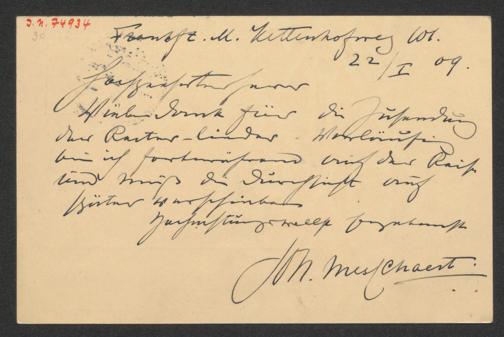 I.N. 74934
30
Frankft. M. Kettenhofweg 101.
22/I 09.
Hochgeehrter Herr
Vielen Dank für die Zusendung
der Reiter-Lieder. Vorläufig
bin ich fortwährend auf der Reise
und muß die Durchsicht auf
später verschieben
Hochachtungsvollst ergebenst
Joh. Messchaert.